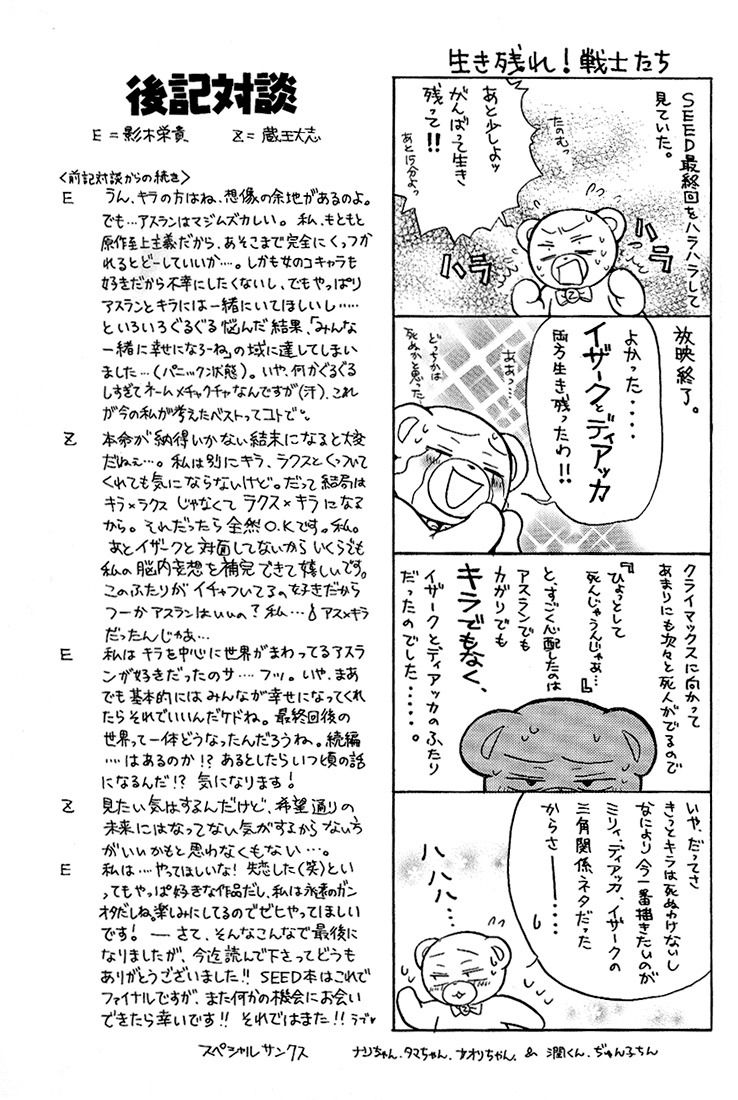 後記対談
E＝影木栄貴　Z＝蔵王大志
<前記対談からの続き>
E　うん、キラの方はね、想像の余地があるのよ。
でも…アスランはマジムズカしい。私、もともと
原作至上主義だから、あそこまで完全にくっつか
れるとどーしていいか…。しかも女のコキャラも
好きだから不幸にしたくないし、でもやっぱり
アスランとキラには一緒にいてほしいし……
といろいろぐるぐる悩んだ結果、「みんな
一緒に幸せになろーね」の域に達してしまい
ました…(パニック状態)。いや、何かぐるぐる
しすぎてネームメチャクチャなんですが(汗)、これ
が今の私が考えたベストってコトで。
Z　本命が納得いかない結末になると大変
だねぇ…。私は別にキラ、ラクスとくっついて
くれても気にならないけど。だって結局は
キラ×ラクス じゃなくて ラクス×キラになる
から。それだったら全然O.Kです。私。
あとイザークと対面してないからいくらでも
私の脳内妄想を補完できて嬉しいです。
このふたりがイチャついてるの好きだから
つーかアスランはいいの？私…アス×キラ
だったんじゃあ…
E　私はキラを中心に世界がまわってるアスラ
ンが好きだったのサ…フッ。いや、まあ
でも基本的にはみんなが幸せになってくれ
たらそれでいいんだケドね。最終回後の
世界って一体どうなったんだろうね。続編
…はあるのか!?あるとしたらいつ頃の話
になるんだ!?気になります！
Z　見たい気はするんだけど、希望通りの
未来にはなってない気がするからない方
がいいかもと思わなくもない…。
E　私は…やってほしいな！失恋した(笑)とい
ってもやっぱ好きな作品だし、私は永遠のガン
オタだしね。楽しみにしてるのでゼヒやってほしい
です！——さて、そんなこんなで最後に
なりましたが、今迄読んで下さってどうも
ありがとうございました!!SEED本はこれで
ファイナルですが、また何かの機会にお会い
できたら幸いです!!それではまた!!ラブ♥
生き残れ！戦士たち
SEED最終回をハラハラして
見ていた。
たのむっ
あと少しよッ
がんばって生き
残って!!
あと15分よっ
ハラ
ハラ
放映終了。
よかった・・・・
イザークとディアッカ
両方生き残ったわ!!
ああっ…
どっちかは
死ぬかと思った
クライマックスに向かって
あまりにも次々と死人がでるので
『ひょっとして
死んじゃうんじゃあ…』
と、すごく心配したのは
アスランでも
カガリでも
キラでもなく、
イザークとディアッカのふたり
だったのでした・・・・・。
いや、だってさ
きっとキラは死ぬわけないし
なにより今一番描きたいのが
ミリィ、ディアッカ、イザークの
三角関係ネタだった
からさ——・・・・
ハハハ…
スペシャルサンクス　ナリちゃん、タマちゃん、ナオリちゃん、& 潤くん、ぢゅん子ちん